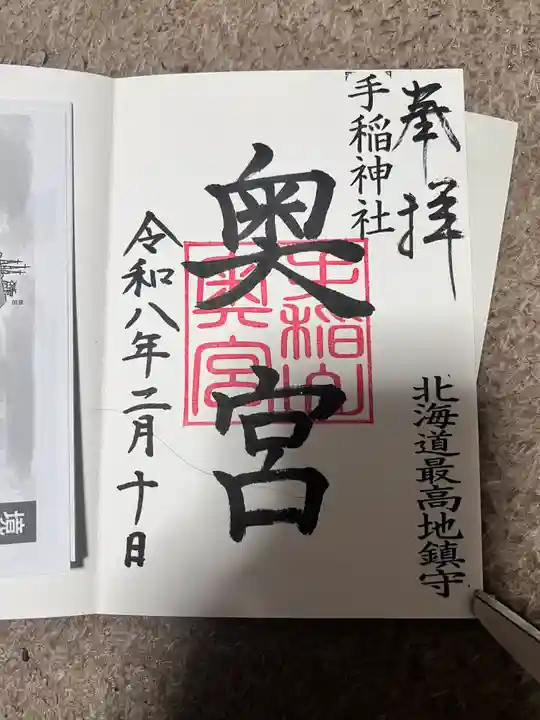 奉拝
手稲神社
北海道最高地鎮守
奥宮
手稲山
奥宮
令和八年二月十日
境